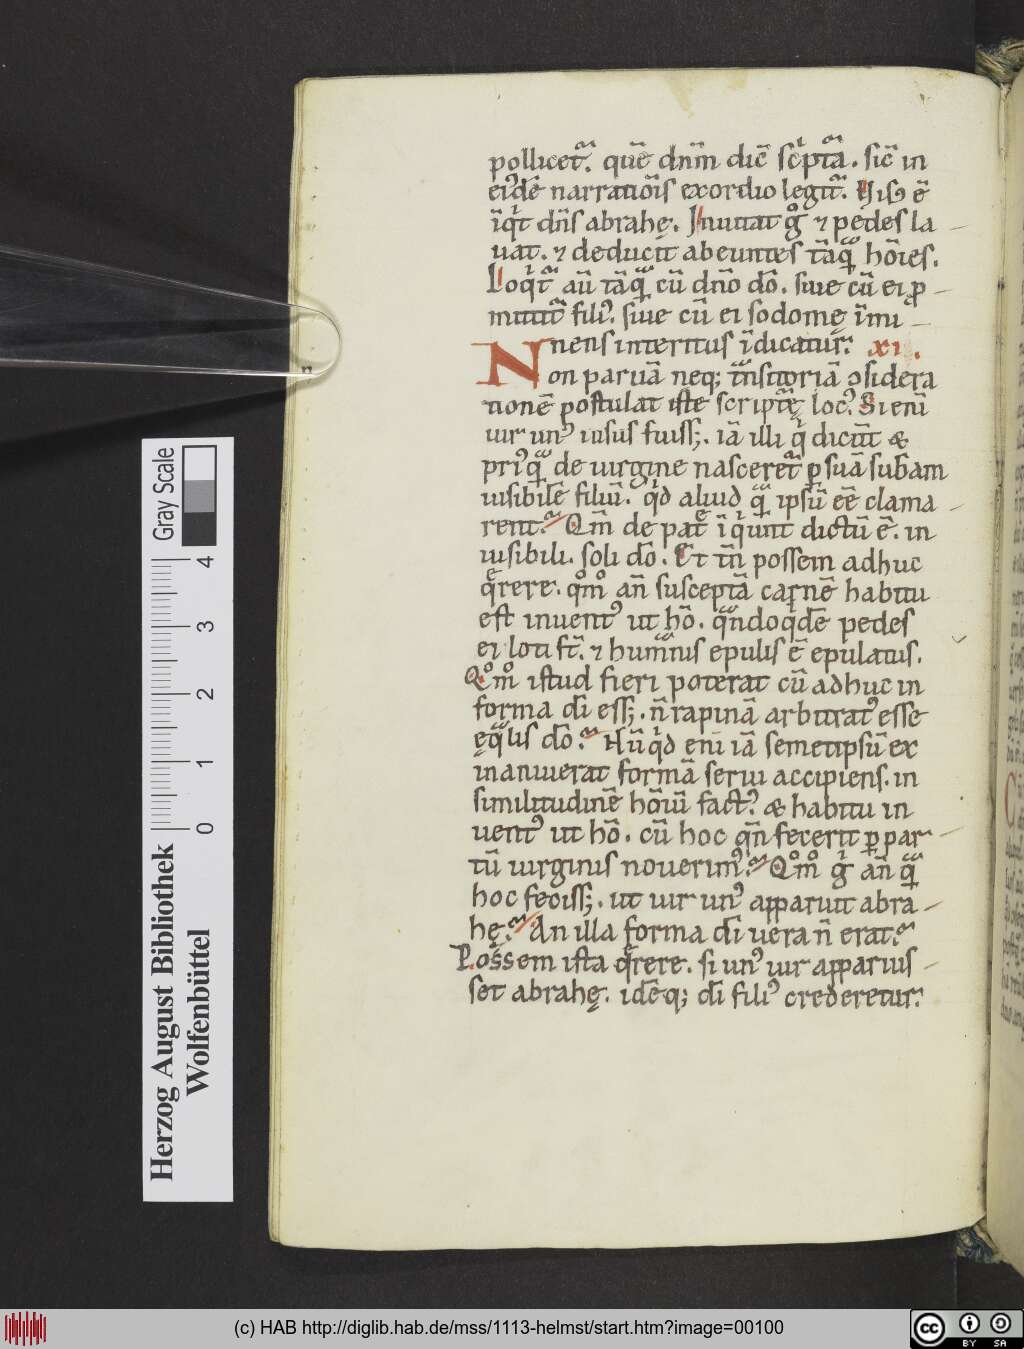 pollicet᷑. quē dn̄m dic̄ sc̄ptā. sic̄ in
ei᷒dē narratiōis exordio legit᷑. His᷒ ē
īqͥt dn̄s abrahę. Inuitat gͦ ⁊ pedes la
uat. ⁊ deducit abeuntes tāqᷓ hōies.
Loqͥt᷑ aū tāqᷓ cū dn̄o dō. siue cū ei ꝓ
mittit᷑ fili᷒. siue cū ei sodomę īmi
nens interitus īdicatur. xi.
Non paruā neq; tᷓnsitoriā ↄsidera
tionē postulat iste scriptᷓę loc᷒. Si enī
uir un᷒ uisus fuiss;. iā illi qͥ dicūt &
pri᷒qᷓ de uirgine nasceret᷑ ꝑ suā sub̄am
uisibilē filiū. qͥd aliud qᷓ ipsū eē clama
rent? Qm̄ de patͤ īqͥunt dictū ē. in
uisibili. soli dō. Et tn̄ possem adhuc
qͤrere. qͦmͦ an̄ susceptā carnē habitu
est inuent᷒ ut hō. qᷓndoqͥdē pedes
ei loti st̄. ⁊ humᷓnis epulis ē epulatus.
Qͦmͦ istud fieri poterat cū adhuc in
forma dī ess;. n̄ rapinā arbitrat᷒ esse
eqᷓlis dō? Nūqͥd enī iā semetipsū ex
inaniuerat formā serui accipiens. in
similitudinē hōiū fact᷒. & habitu in
uent᷒ ut hō. cū hoc qn̄ fecerit ꝑ par
tū uirginis nouerim᷒? Qͦmͦ gͥ an̄ qᷓ
hoc feciss;. ut uir un᷒ apparuit abra
hę? An illa forma dī uera n̄ erat?
Possem ista qͤrere. si un᷒ uir apparuis
set abrahę. idēq; dī fili᷒ crederetur.
Gray Scale
0 1 2 3 4
Herzog August Bibliothek
Wolfenbüttel
(c) HAB http://diglib.hab.de/mss/1113-helmst/start.htm?image=00100
cc BY SA